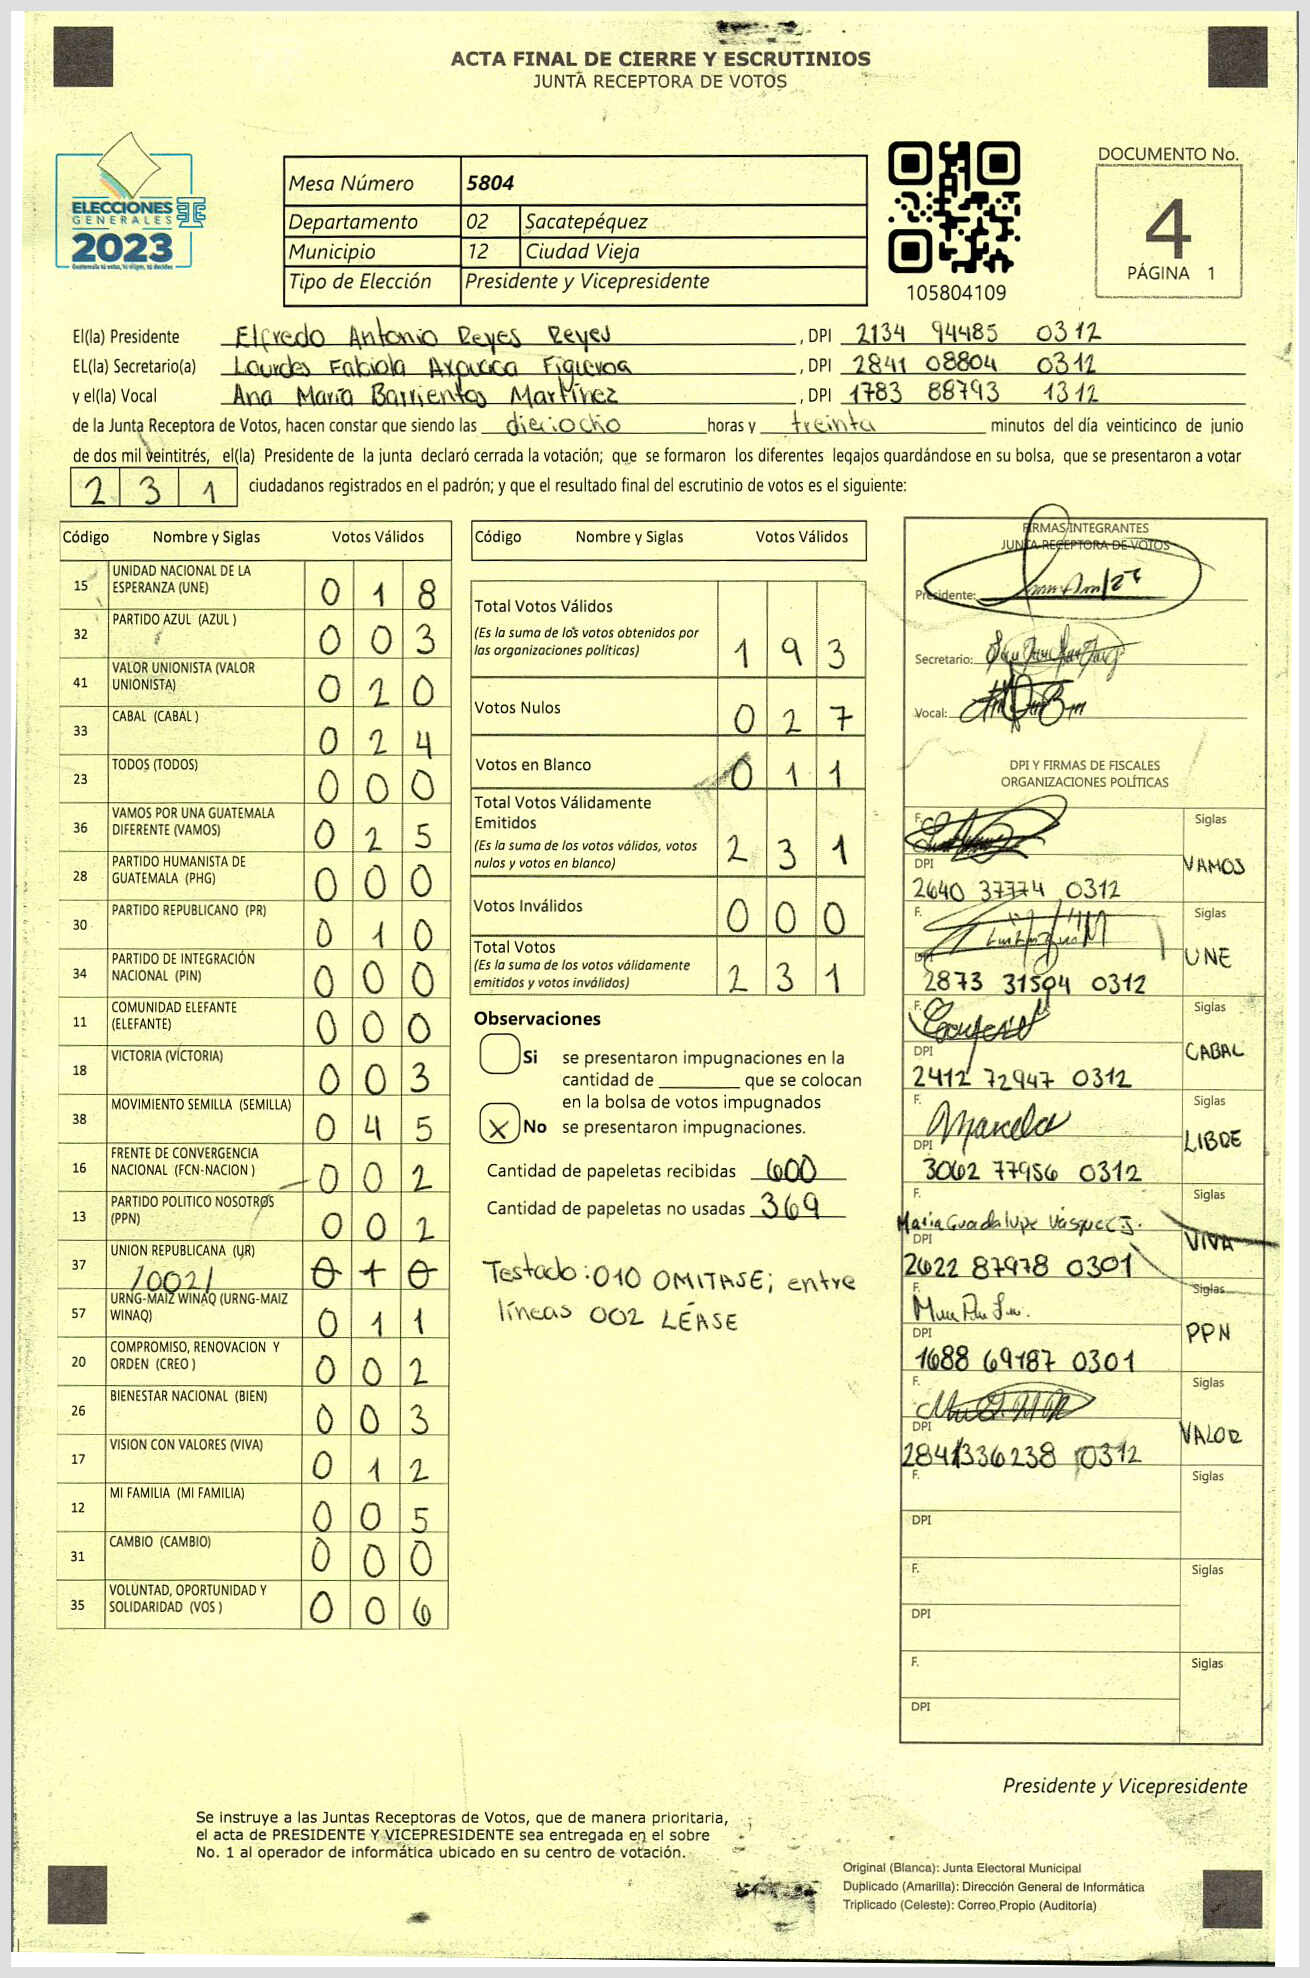 ACTA FINAL DE CIERRE Y ESCRUTINIOS
JUNTA RECEPTORA DE VOTOS
ELECCIONES
GENERALES
2023
Guatemala tú votas, tú eliges, tú decides
Mesa Número 5804
Departamento 02 Sacatepéquez
Municipio 12 Ciudad Vieja
Tipo de Elección Presidente y Vicepresidente
105804109
DOCUMENTO No.
4
PÁGINA 1
El(la) Presidente Elfredo Antonio Reyes Reyes, DPI 2134 94485 0312
EL(la) Secretario(a) Lourdes Fabiola Axpuaca Figueroa, DPI 2841 08804 0312
y el(la) Vocal Ana María Barrientos Martínez, DPI 1783 88793 1312
de la Junta Receptora de Votos, hacen constar que siendo las dieciocho horas y treinta minutos del día veinticinco de junio
de dos mil veintitrés, el(la) Presidente de la junta declaró cerrada la votación; que se formaron los diferentes legajos guardándose en su bolsa, que se presentaron a votar
231 ciudadanos registrados en el padrón; y que el resultado final del escrutinio de votos es el siguiente:
Código Nombre y Siglas Votos Válidos
15 UNIDAD NACIONAL DE LA ESPERANZA (UNE) 018
32 PARTIDO AZUL (AZUL ) 003
41 VALOR UNIONISTA (VALOR UNIONISTA) 020
33 CABAL (CABAL ) 024
23 TODOS (TODOS) 000
36 VAMOS POR UNA GUATEMALA DIFERENTE (VAMOS) 025
28 PARTIDO HUMANISTA DE GUATEMALA (PHG) 000
30 PARTIDO REPUBLICANO (PR) 010
34 PARTIDO DE INTEGRACIÓN NACIONAL (PIN) 000
11 COMUNIDAD ELEFANTE (ELEFANTE) 000
18 VICTORIA (VICTORIA) 003
38 MOVIMIENTO SEMILLA (SEMILLA) 045
16 FRENTE DE CONVERGENCIA NACIONAL (FCN-NACION ) 002
13 PARTIDO POLITICO NOSOTROS (PPN) 002
37 UNION REPUBLICANA (UR) /002/ 010
57 URNG-MAIZ WINAQ (URNG-MAIZ WINAQ) 011
20 COMPROMISO, RENOVACION Y ORDEN (CREO ) 002
26 BIENESTAR NACIONAL (BIEN) 003
17 VISION CON VALORES (VIVA) 012
12 MI FAMILIA (MI FAMILIA) 005
31 CAMBIO (CAMBIO) 000
35 VOLUNTAD, OPORTUNIDAD Y SOLIDARIDAD (VOS ) 006
Código Nombre y Siglas Votos Válidos
Total Votos Válidos
(Es la suma de los votos obtenidos por
las organizaciones políticas) 193
Votos Nulos 027
Votos en Blanco 011
Total Votos Válidamente
Emitidos
(Es la suma de los votos válidos, votos
nulos y votos en blanco) 231
Votos Inválidos 000
Total Votos
(Es la suma de los votos válidamente
emitidos y votos inválidos) 231
Observaciones
Si se presentaron impugnaciones en la
cantidad de ________ que se colocan
en la bolsa de votos impugnados
X No se presentaron impugnaciones.
Cantidad de papeletas recibidas 600
Cantidad de papeletas no usadas 369
Testado: 010 OMITASE; entre
líneas 002 LÉASE
FIRMAS INTEGRANTES
JUNTA RECEPTORA DE VOTOS
Presidente:
Secretario:
Vocal:
DPI Y FIRMAS DE FISCALES
ORGANIZACIONES POLÍTICAS
F. Siglas
DPI VAMOS
2640 37774 0312
F. Siglas
DPI UNE
2873 31594 0312
F. Siglas
DPI CABAL
2412 72947 0312
F. Marcela Siglas
DPI LIBDE
3062 77956 0312
F. Siglas
Maria Guadalupe Vásquez J.
DPI VIVA
2622 87978 0301
F. Siglas
DPI PPN
1688 69187 0301
F. Siglas
DPI VALOR
2841336238 0312
F. Siglas
DPI
F. Siglas
DPI
F. Siglas
DPI
Presidente y Vicepresidente
Se instruye a las Juntas Receptoras de Votos, que de manera prioritaria,
el acta de PRESIDENTE Y VICEPRESIDENTE sea entregada en el sobre
No. 1 al operador de informática ubicado en su centro de votación.
Original (Blanca): Junta Electoral Municipal
Duplicado (Amarilla): Dirección General de Informática
Triplicado (Celeste): Correo Propio (Auditoría)